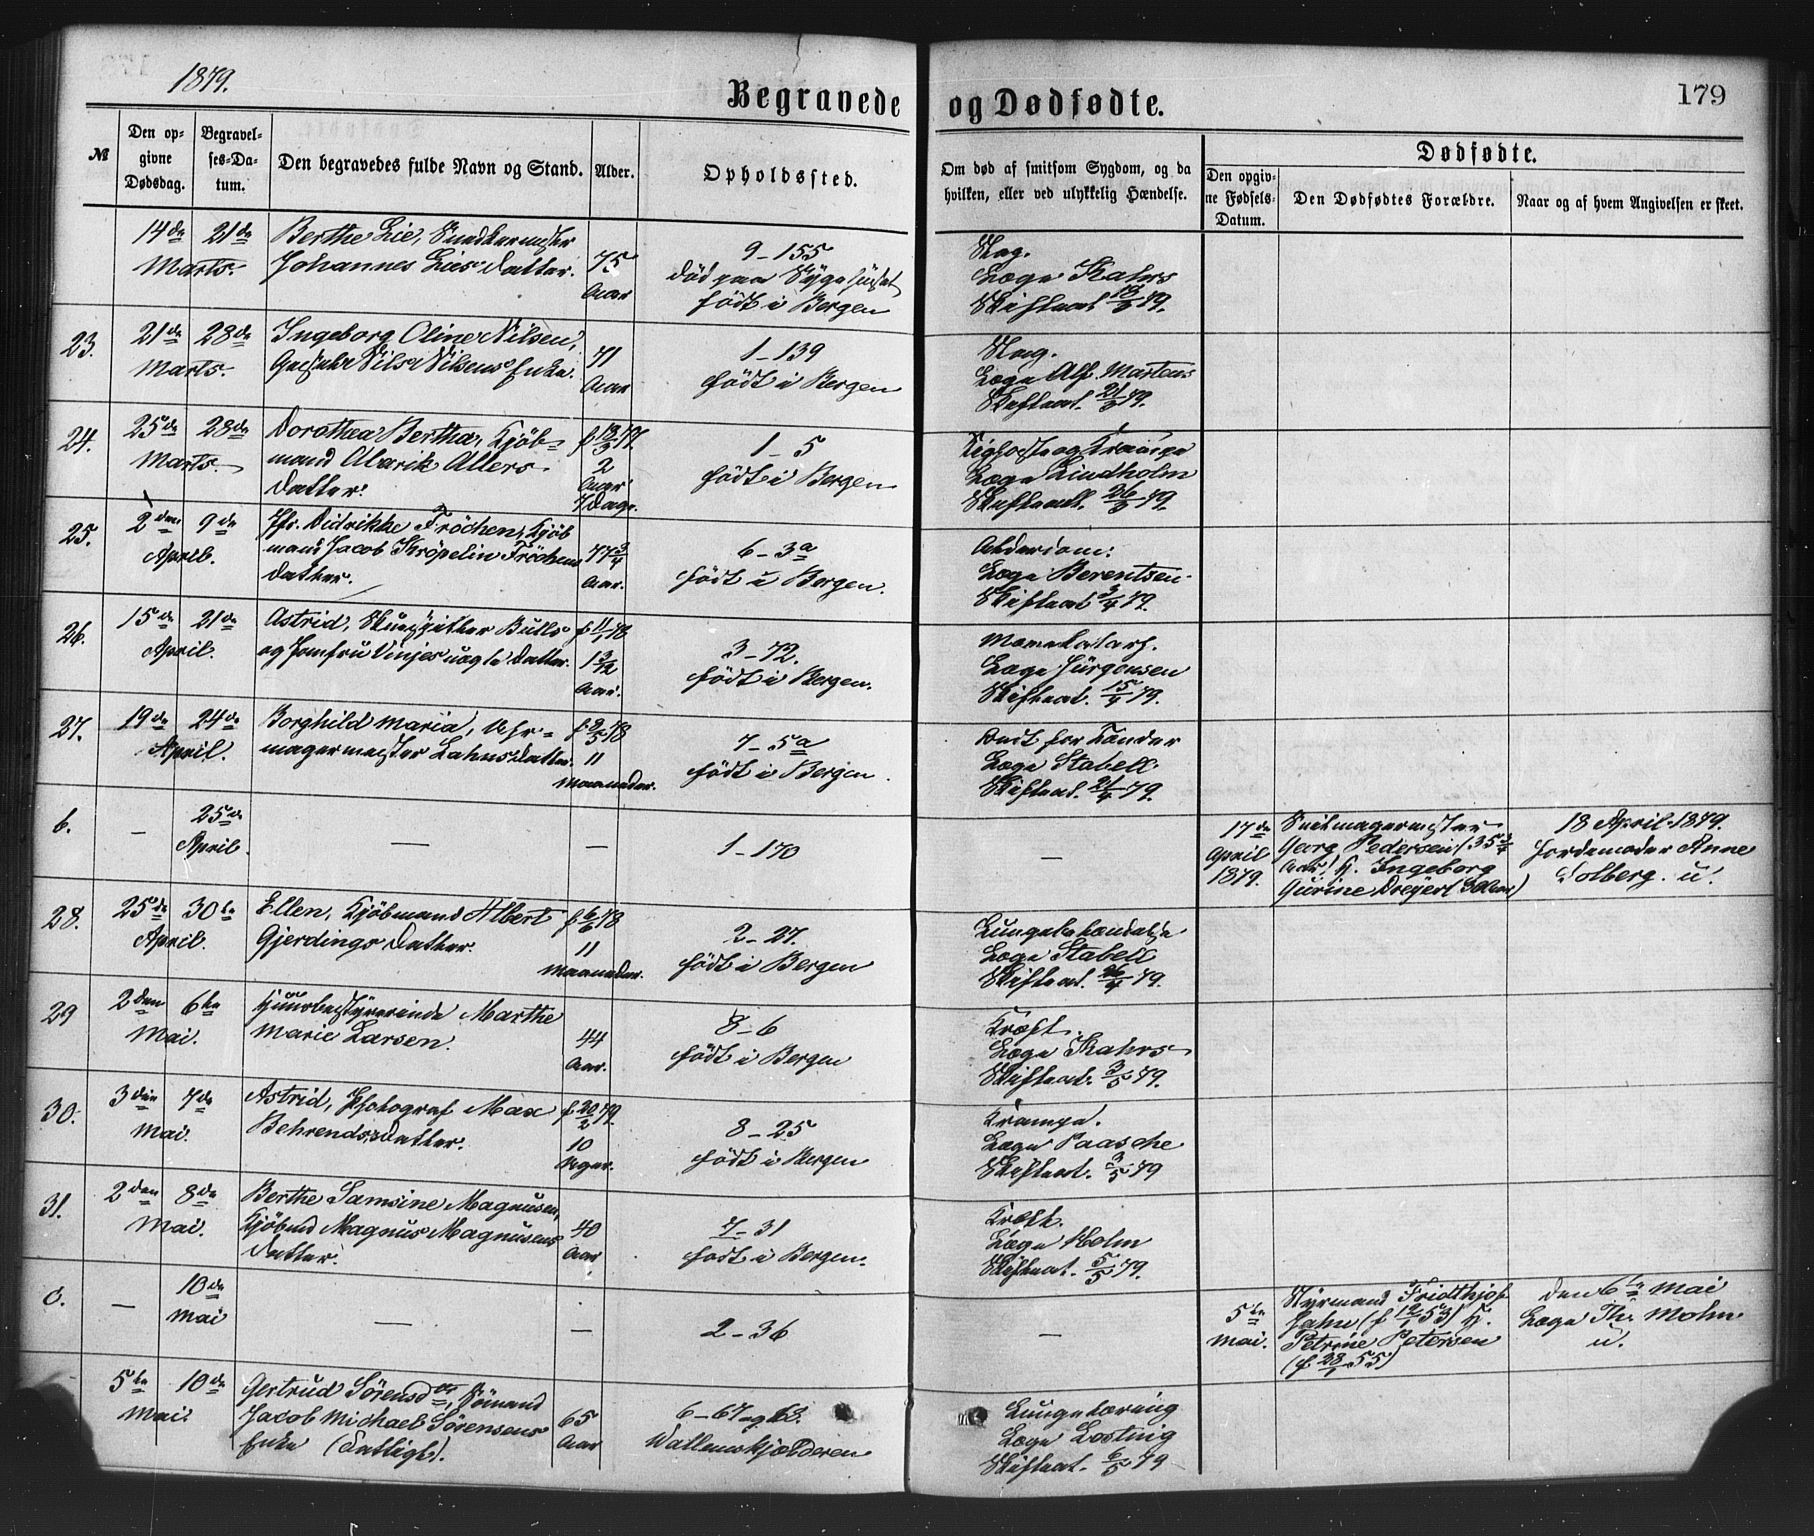 1879.
Begravede og Dødfødte.
179
№
Den op-
givne
Dødsdag.
Begravel-
ses-Da-
tum.
Den begravedes fulde Navn og Stand.
Alder.
Opholdssted.
Om død af smitsom Sygdom, og da
hvilken, eller ved ulykkelig Hændelse.
Dødfødte.
Den opgiv-
ne Fødsels-
Datum.
Den Dødfødtes Forældre.
Naar og af hvem Angivelsen er skeet.
14de 21de
Marts.
Berthe Lie, Snedkermester
Johannes Lies Datter.
75
Aar
9-155
død paa Sygehuset
født i Bergen
Slag.
Læge Kahrs
Skifteat. 18/3 79.
23.
21de 28de
Marts.
Ingeborg Oline Nilsen,
Nils Nilsens Enke.
71
Aar
1-139
født i Bergen
Slag.
Læge Alf. Martens
Skifteat. 21/3 79.
24.
25de 28de
Marts.
Dorothea Bertha, Kjøb-
mand Alarik Allers
Datter.
f 18/3 77.
2
Aar
7 Dage.
1-5
født i Bergen
Kighoste og Krampe
Læge Lindholm
Skifteatt. 26/3 79.
25.
2den 9de
April.
Jfr. Didrikke Fröchen, Kjöb
mand Jacob Kröpelin Fröchens
Datter.
77 3/4
Aar.
6-3a
født i Bergen.
Alderdom.
Læge Berentsen
Skifteat 3/4 79.
26.
15de 21de
April.
Astrid, Skuespiller Bulls
og Jomfru Vinjes uægte Datter.
f 11/1 78
1 3/12
Aar.
3-72.
født i Bergen.
Mavekatarh.
Læge Jürgensen
Skifteat. 15/4 79.
27.
19de 24de
April.
Borghild Maria, Uhr-
magermester Lahns Datter.
f 8/5 78
11
Maaneder.
7-5a
født i Bergen.
Ondt for Tænder
Læge Stabell.
Skifteat. 21/4 79.
6.
—
25de
April.
—
—
1-170
—
17de
April
1879.
Seilmagermester
Georg Pedersen (35 3/4
Aar) H. Ingeborg
Gurine Dreyer
18 April 1879.
Jordemoder Anne
Solberg. u.
28.
25de 30te
April.
Ellen, Kjöbmand Albert
Gjerdings Datter.
f 6/6 78
11
Maaneder.
2-27.
født i Bergen
Lungebetændelse
Læge Stabell
Skifteat. 26/4 79.
29
2den 6te
Mai.
Huusbestyrerinde Marthe
Marie Larsen.
44
Aar.
8-6
født i Bergen
Kræft.
Læge Kahrs
Skifteat. 3/5 79.
30.
3die 7de
Mai.
Astrid, Photograf Max
Behrends Datter.
f 20/2 79.
10
Uger.
8-25
født i Bergen
Krampe.
Læge Paasche
Skifteat. 3/5 79
31.
2den 8de
Mai.
Berthe Samsine Magnusen,
Kjöbmd Magnus Magnusens
Datter.
40
Aar
7-31
født i Bergen.
Kræft.
Læge Holm
Skifteat. 5/5 79.
c.
—
10de
Mai
—
—
2-36
—
5te
Mai.
Styrmand Fridthjof
Jahn (f 12/1 53) H.
Petrine Petersen
(f. 28/1 55)
den 6te Mai
Læge Th. Mohn
u.
5te 10de
Mai.
Gertrud Sørensdtr, Sømand
Jacob Michael Sörensens
Enke (Fattiglh).
65
Aar
6-67 og 68.
Wallemskjælderen
Lungetæring
Læge Losting
Skifteat. 6/5 79